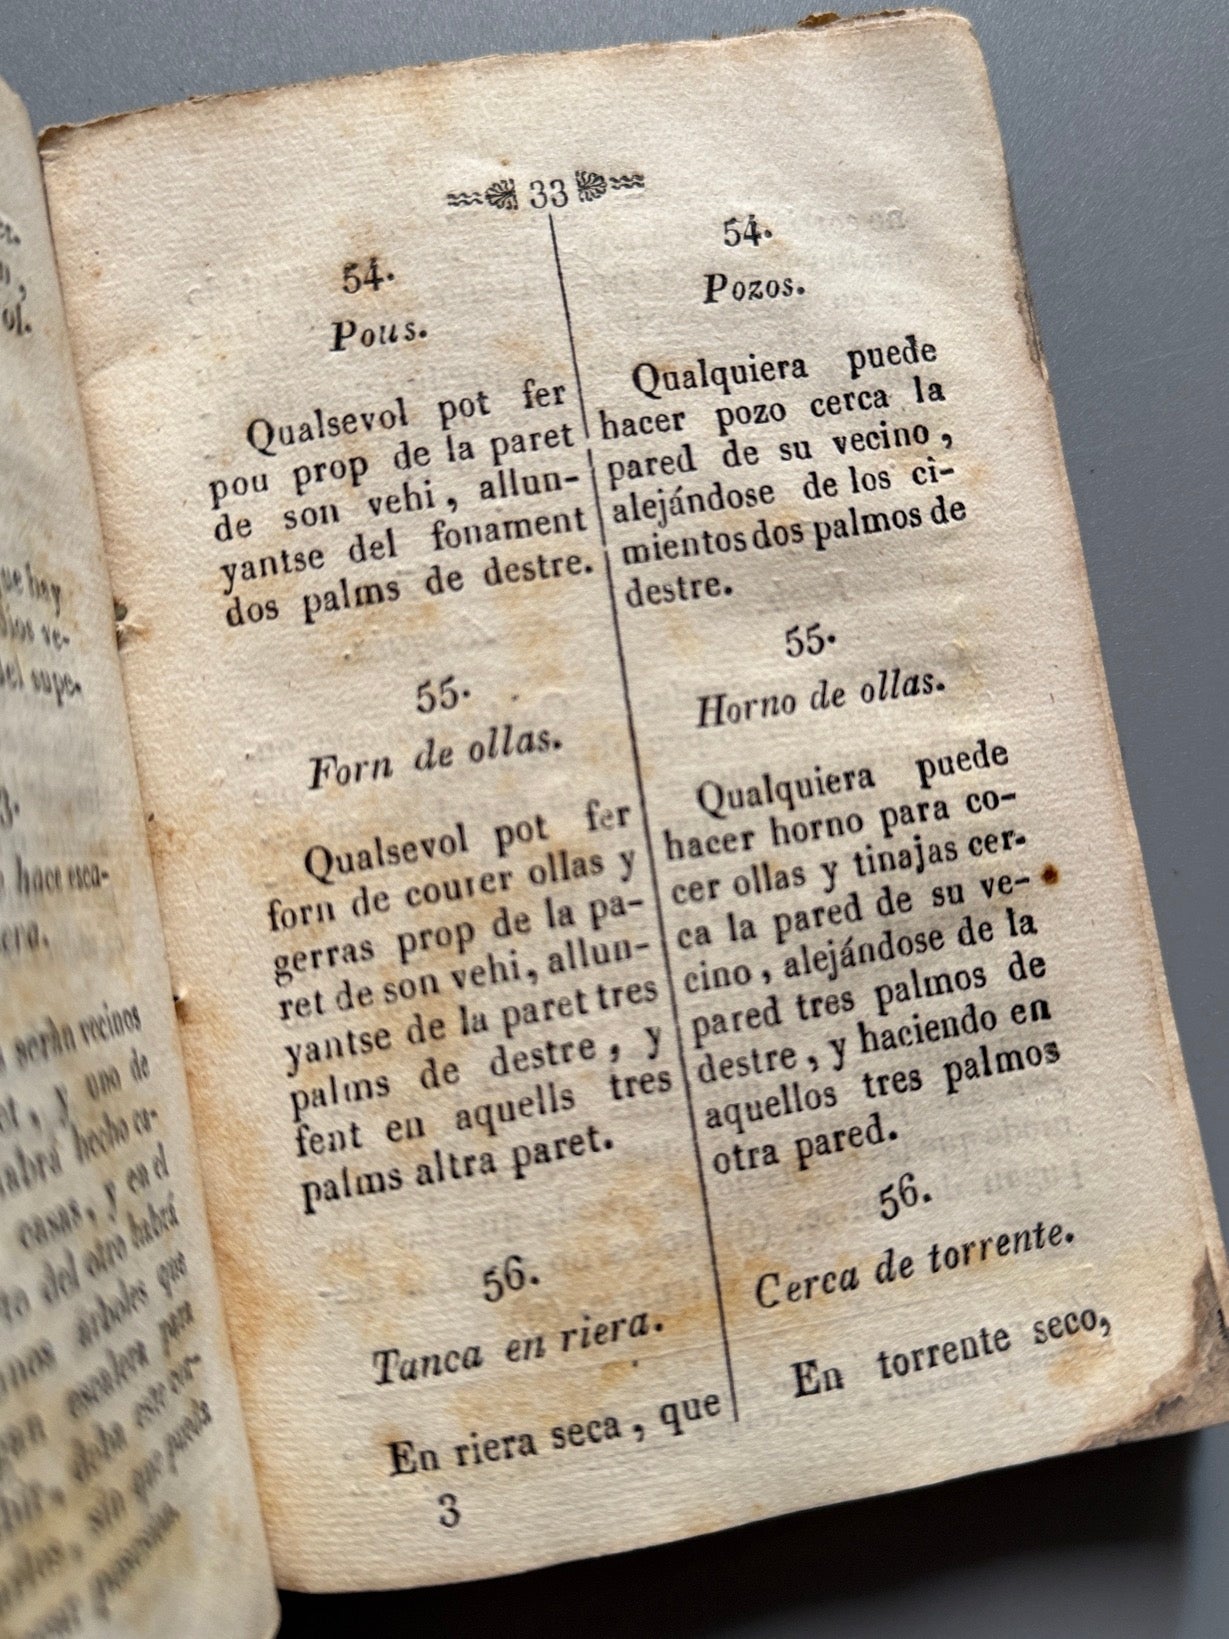 ol.
que hay
del supe-
hace esca-
serán vecinos
y, uno de
hecho ca-
casas, y en el
del otro habrá
árboles que
escalera para
deba este cer-
sin que pueda
33
54.
Pous.
Qualsevol pot fer
pou prop de la paret
de son vehi, allun-
yantse del fonament
dos palms de destre.
55.
Forn de ollas.
Qualsevol pot fer
forn de courer ollas y
gerras prop de la pa-
ret de son vehi, allun-
yantse de la paret tres
palms de destre, y
fent en aquells tres
palms altra paret.
56.
Tanca en riera.
En riera seca, que
3
54.
Pozos.
Qualquiera puede
hacer pozo cerca la
pared de su vecino,
alejándose de los ci-
mientos dos palmos de
destre.
55.
Horno de ollas.
Qualquiera puede
hacer horno para co-
cer ollas y tinajas cer-
ca la pared de su ve-
cino, alejándose de la
pared tres palmos de
destre, y haciendo en
aquellos tres palmos
otra pared.
56.
Cerca de torrente.
En torrente seco,